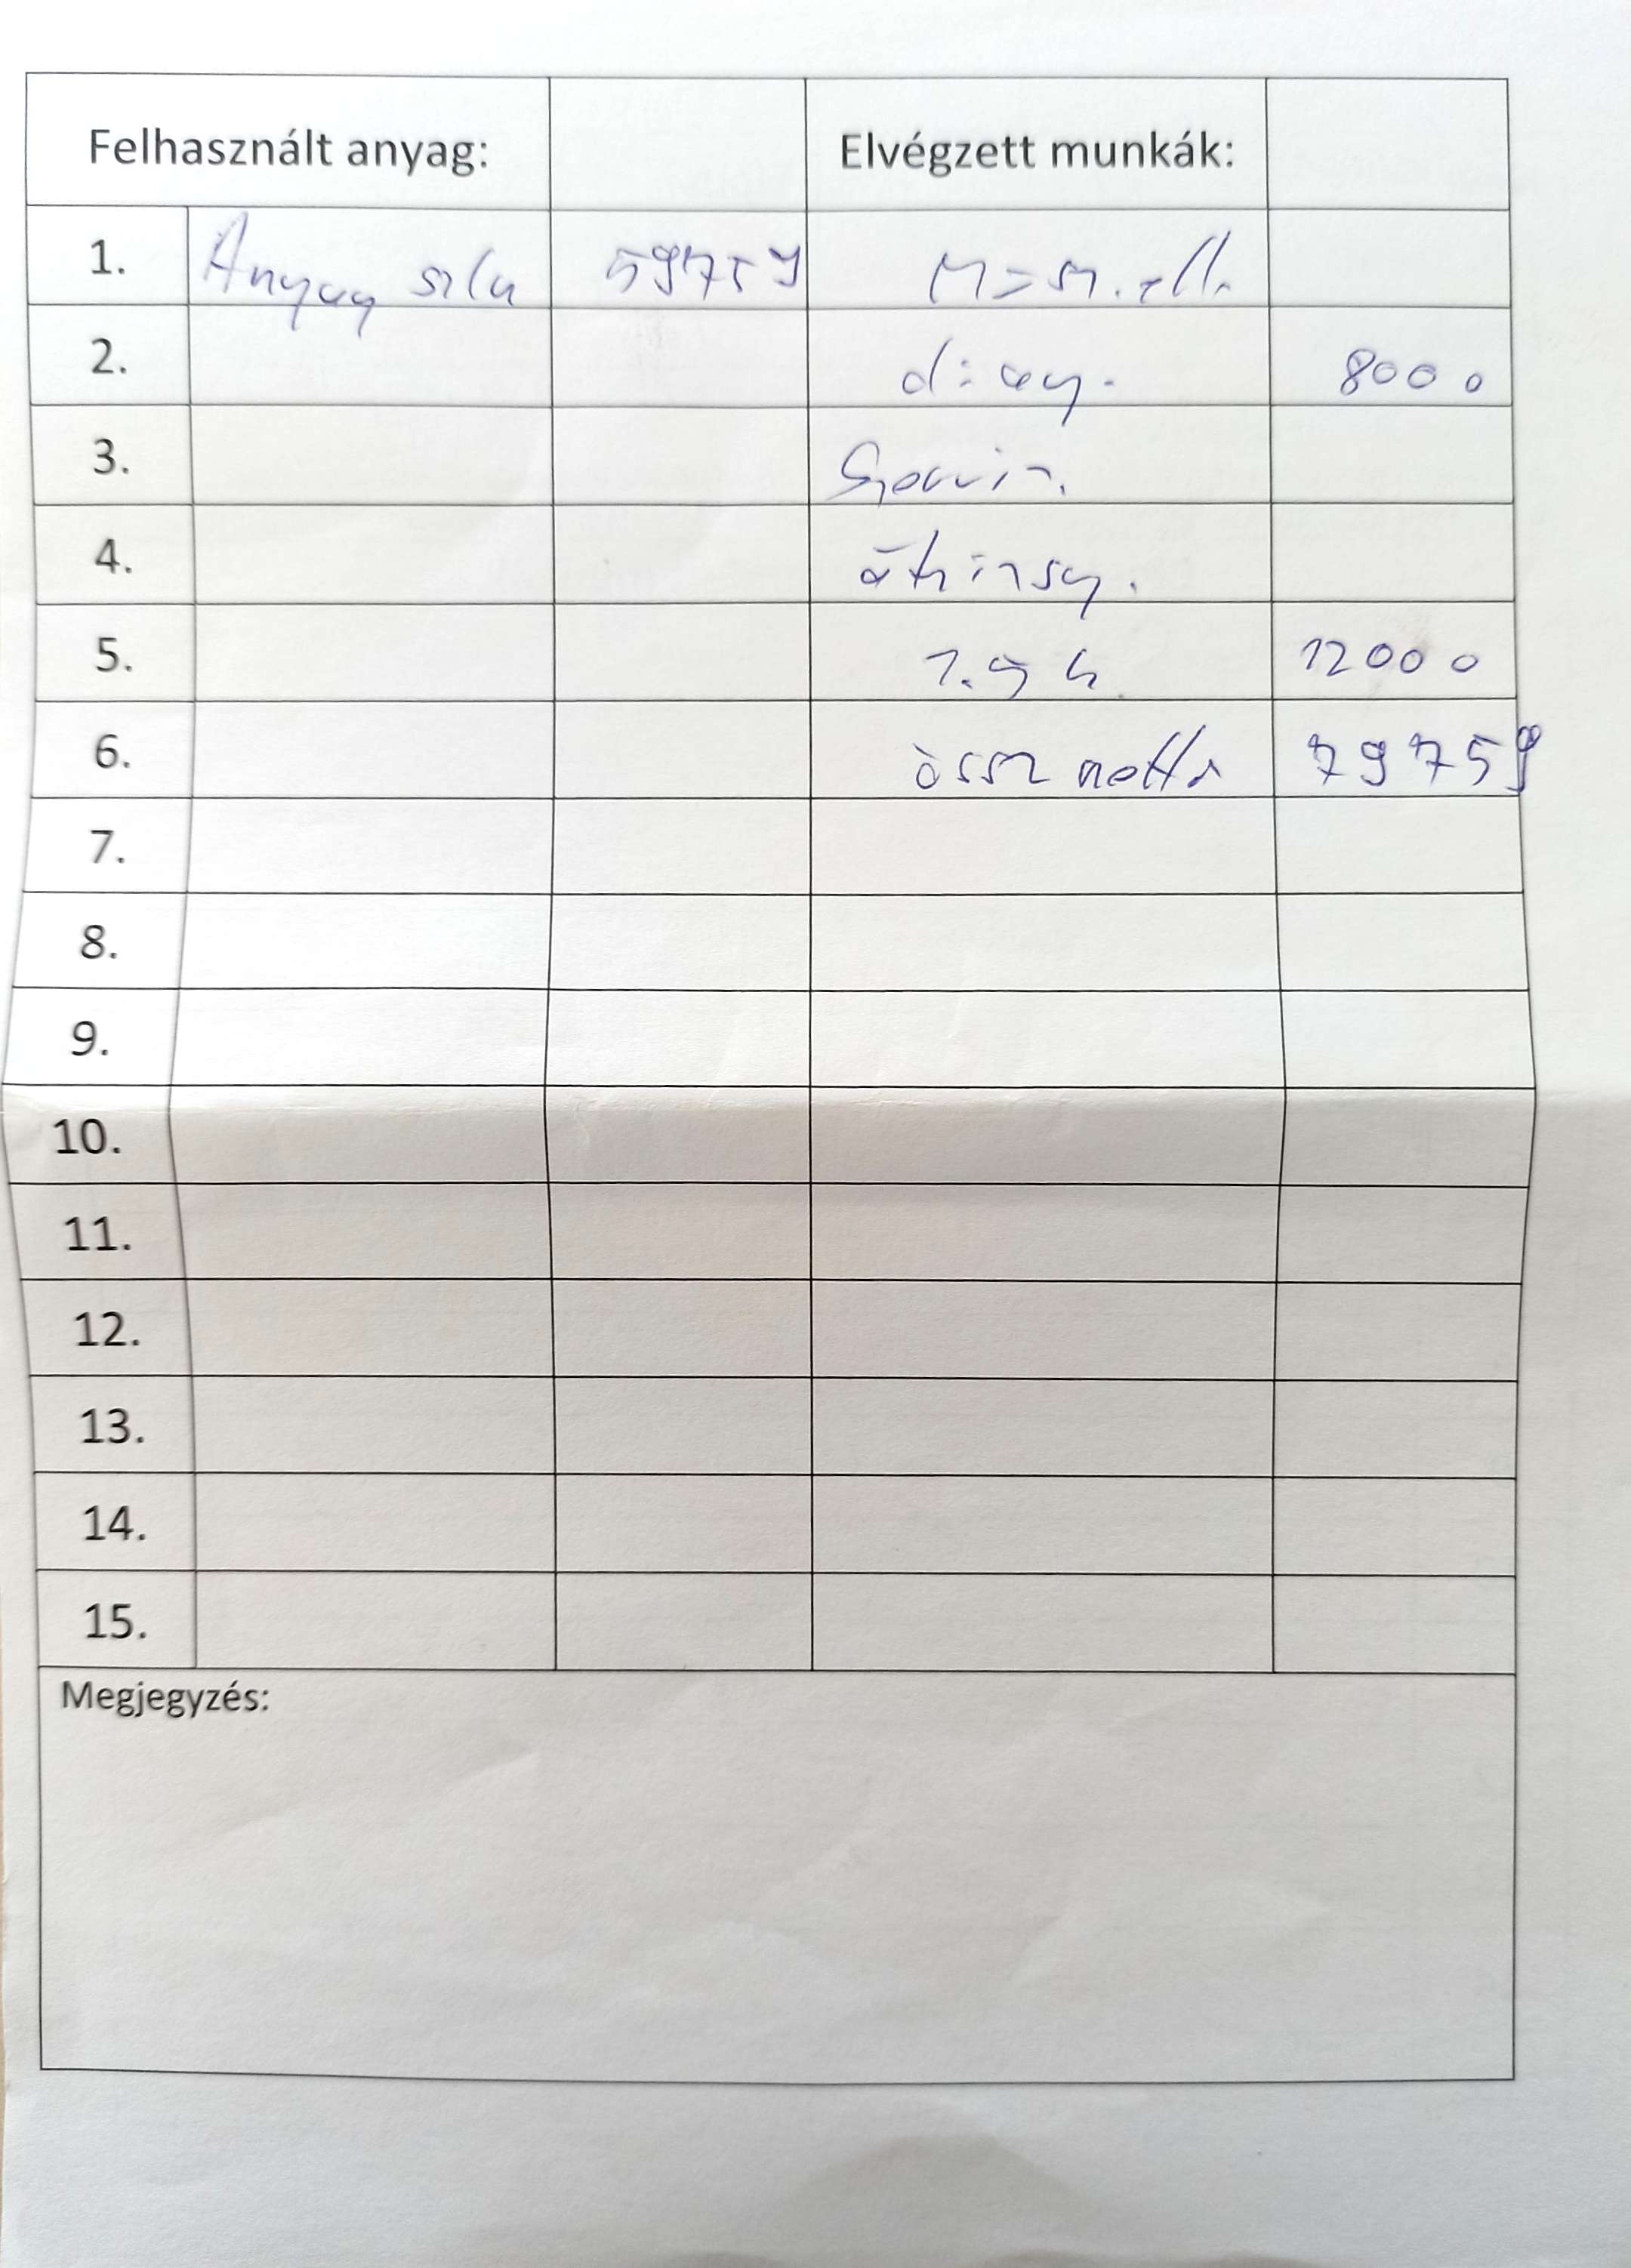 Felhasznált anyag: Elvégzett munkák:
1. Anyag szla 59759 Műsz. ell.
2. diag. 8000
3. Gyorvir.
4. átvizsg.
5. 1.5 h 12000
6. össz nettó 79759
7.
8.
9.
10.
11.
12.
13.
14.
15.
Megjegyzés: